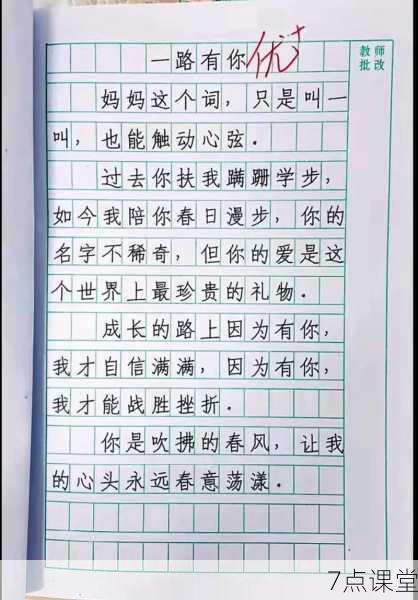 一路有你
优+
教师
批改
妈妈这个词，只是叫一
叫，也能触动心弦.
过去你扶我蹒跚学步，
如今我陪你春日漫步，你的
名字不稀奇，但你的爱是这
个世界上最珍贵的礼物.
成长的路上因为有你，
我才自信满满，因为有你，
我才能战胜挫折.
你是吹拂的春风，让我
的心头永远春意荡漾.
7点课堂